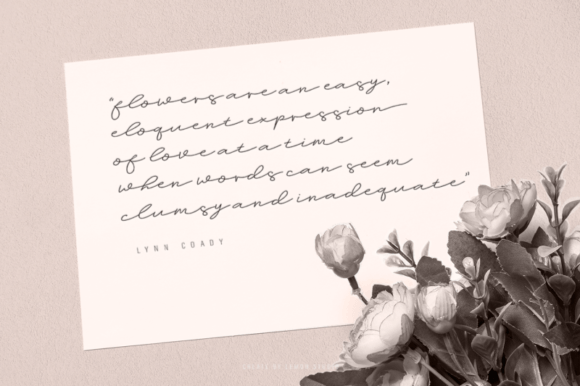 "flowers are an easy,
eloquent expression
of love at a time
when words can seem
clumsy and inadequate"
LYNN COADY